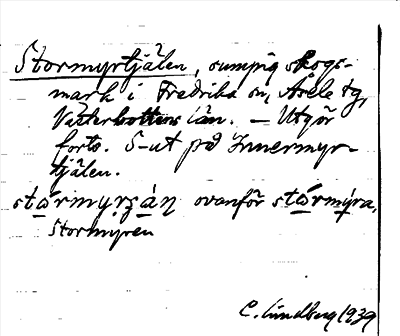 Stormyrtjälen, sumpig skogs-
mark i Fredrika sn, Åsele tg,
Västerbottens län. — Utgör
forts. S-ut på Innermyr-
tjälen.
ovanför
Stormyren
C. Lindberg 1939